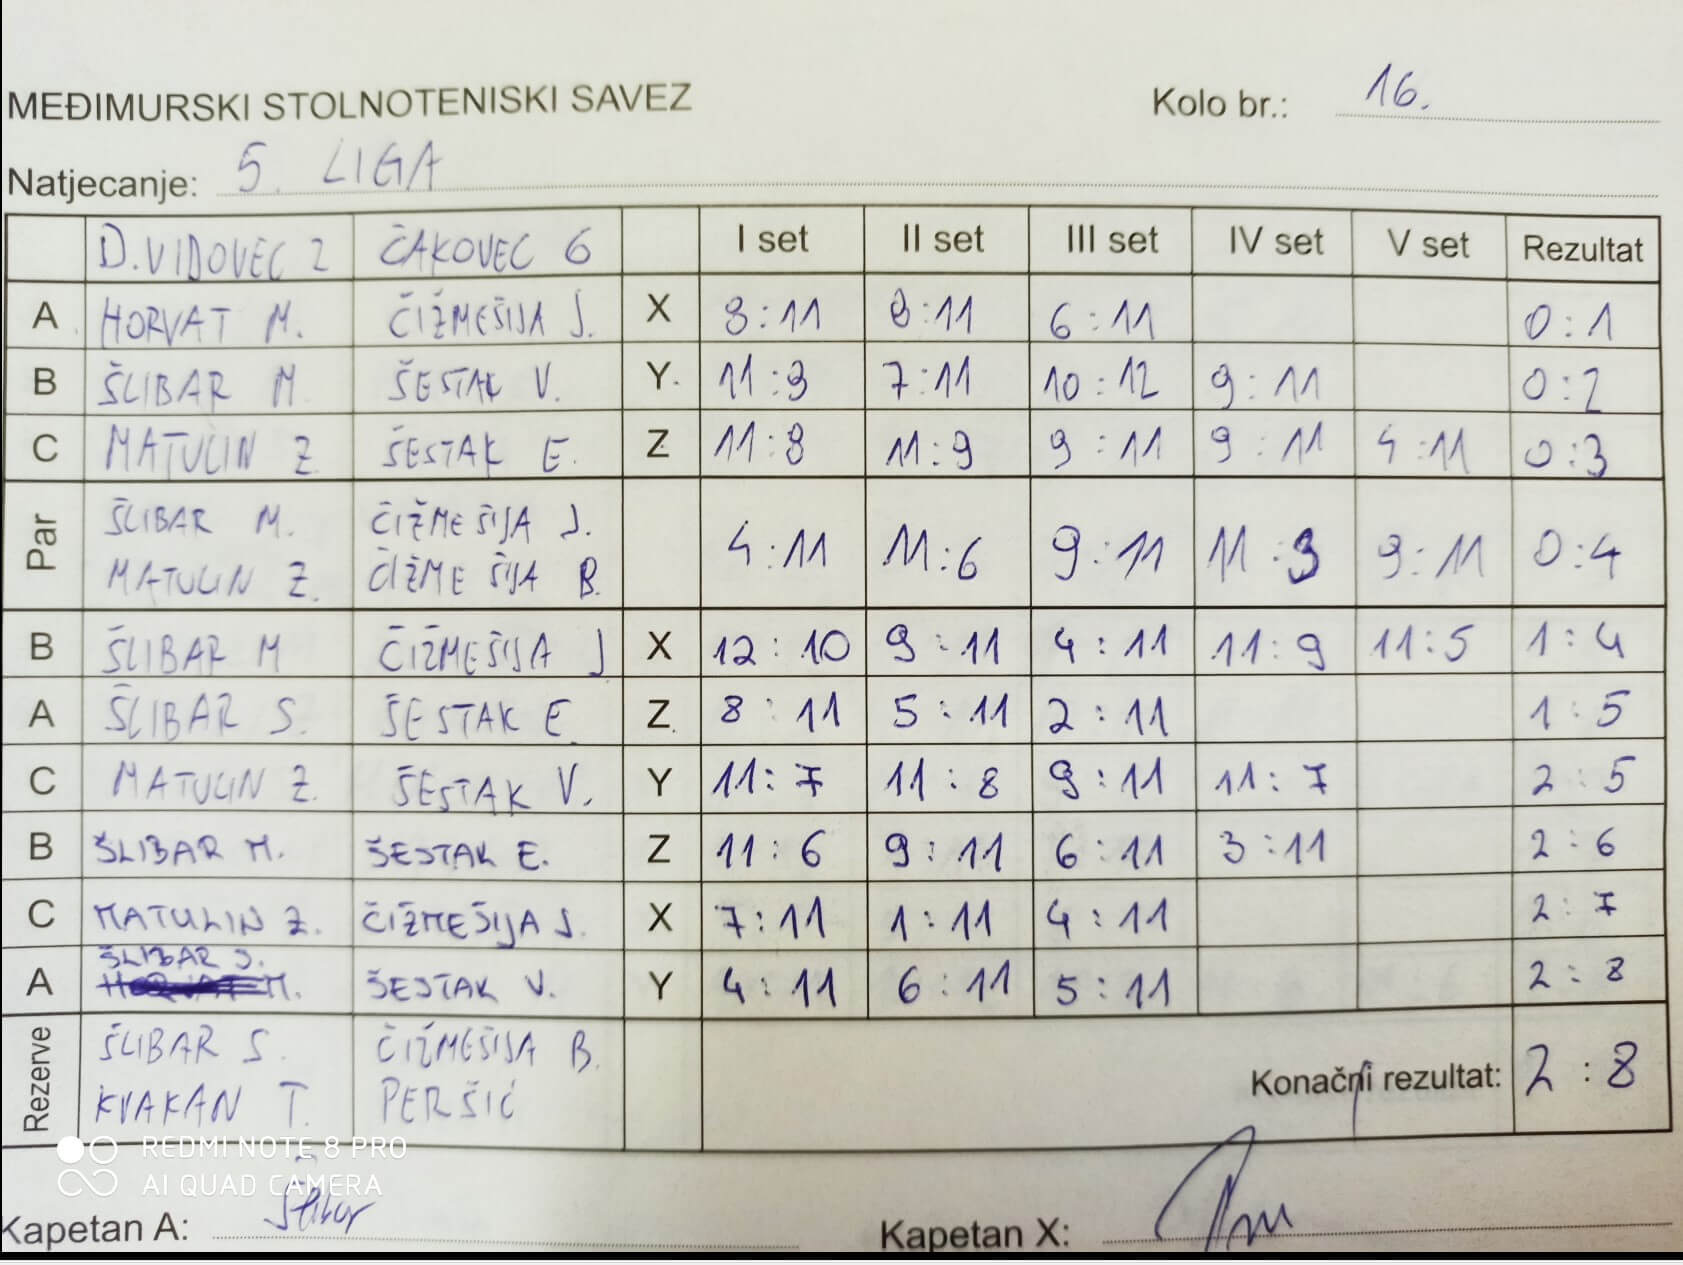 MEĐIMURSKI STOLNOTENISKI SAVEZ Kolo br.: 16.
Natjecanje: 5. LIGA
D.VIDOVEC 2 ČAKOVEC 6 I set II set III set IV set V set Rezultat
A HORVAT M. ČIŽMEŠIJA J. X 8:11 8:11 6:11 0:1
B ŠLIBAR M. ŠESTAK V. Y 11:3 7:11 10:12 9:11 0:2
C MATULIN Z. ŠESTAK E. Z 11:8 11:9 9:11 9:11 4:11 0:3
Par ŠLIBAR M. ČIŽMEŠIJA J. 4:11 11:6 9:11 11:9 9:11 0:4
MATULIN Z. ČIŽMEŠIJA B.
B ŠLIBAR M ČIŽMEŠIJA J X 12:10 9:11 4:11 11:9 11:5 1:4
A ŠLIBAR S. ŠESTAK E. Z 8:11 5:11 2:11 1:5
C MATULIN Z. ŠESTAK V. Y 11:7 11:8 9:11 11:7 2:5
B ŠLIBAR M. ŠESTAK E. Z 11:6 9:11 6:11 3:11 2:6
C MATULIN Z. ČIŽMEŠIJA J. X 7:11 1:11 4:11 2:7
ŠLIBAR S.
A HORVAT M. ŠESTAK V. Y 4:11 6:11 5:11 2:8
Rezerve ŠLIBAR S. ČIŽMEŠIJA B.
KVAKAN T. PERŠIĆ Konačni rezultat: 2:8
REDMI NOTE 8 PRO
AI QUAD CAMERA
Kapetan A: Šlibar Kapetan X: